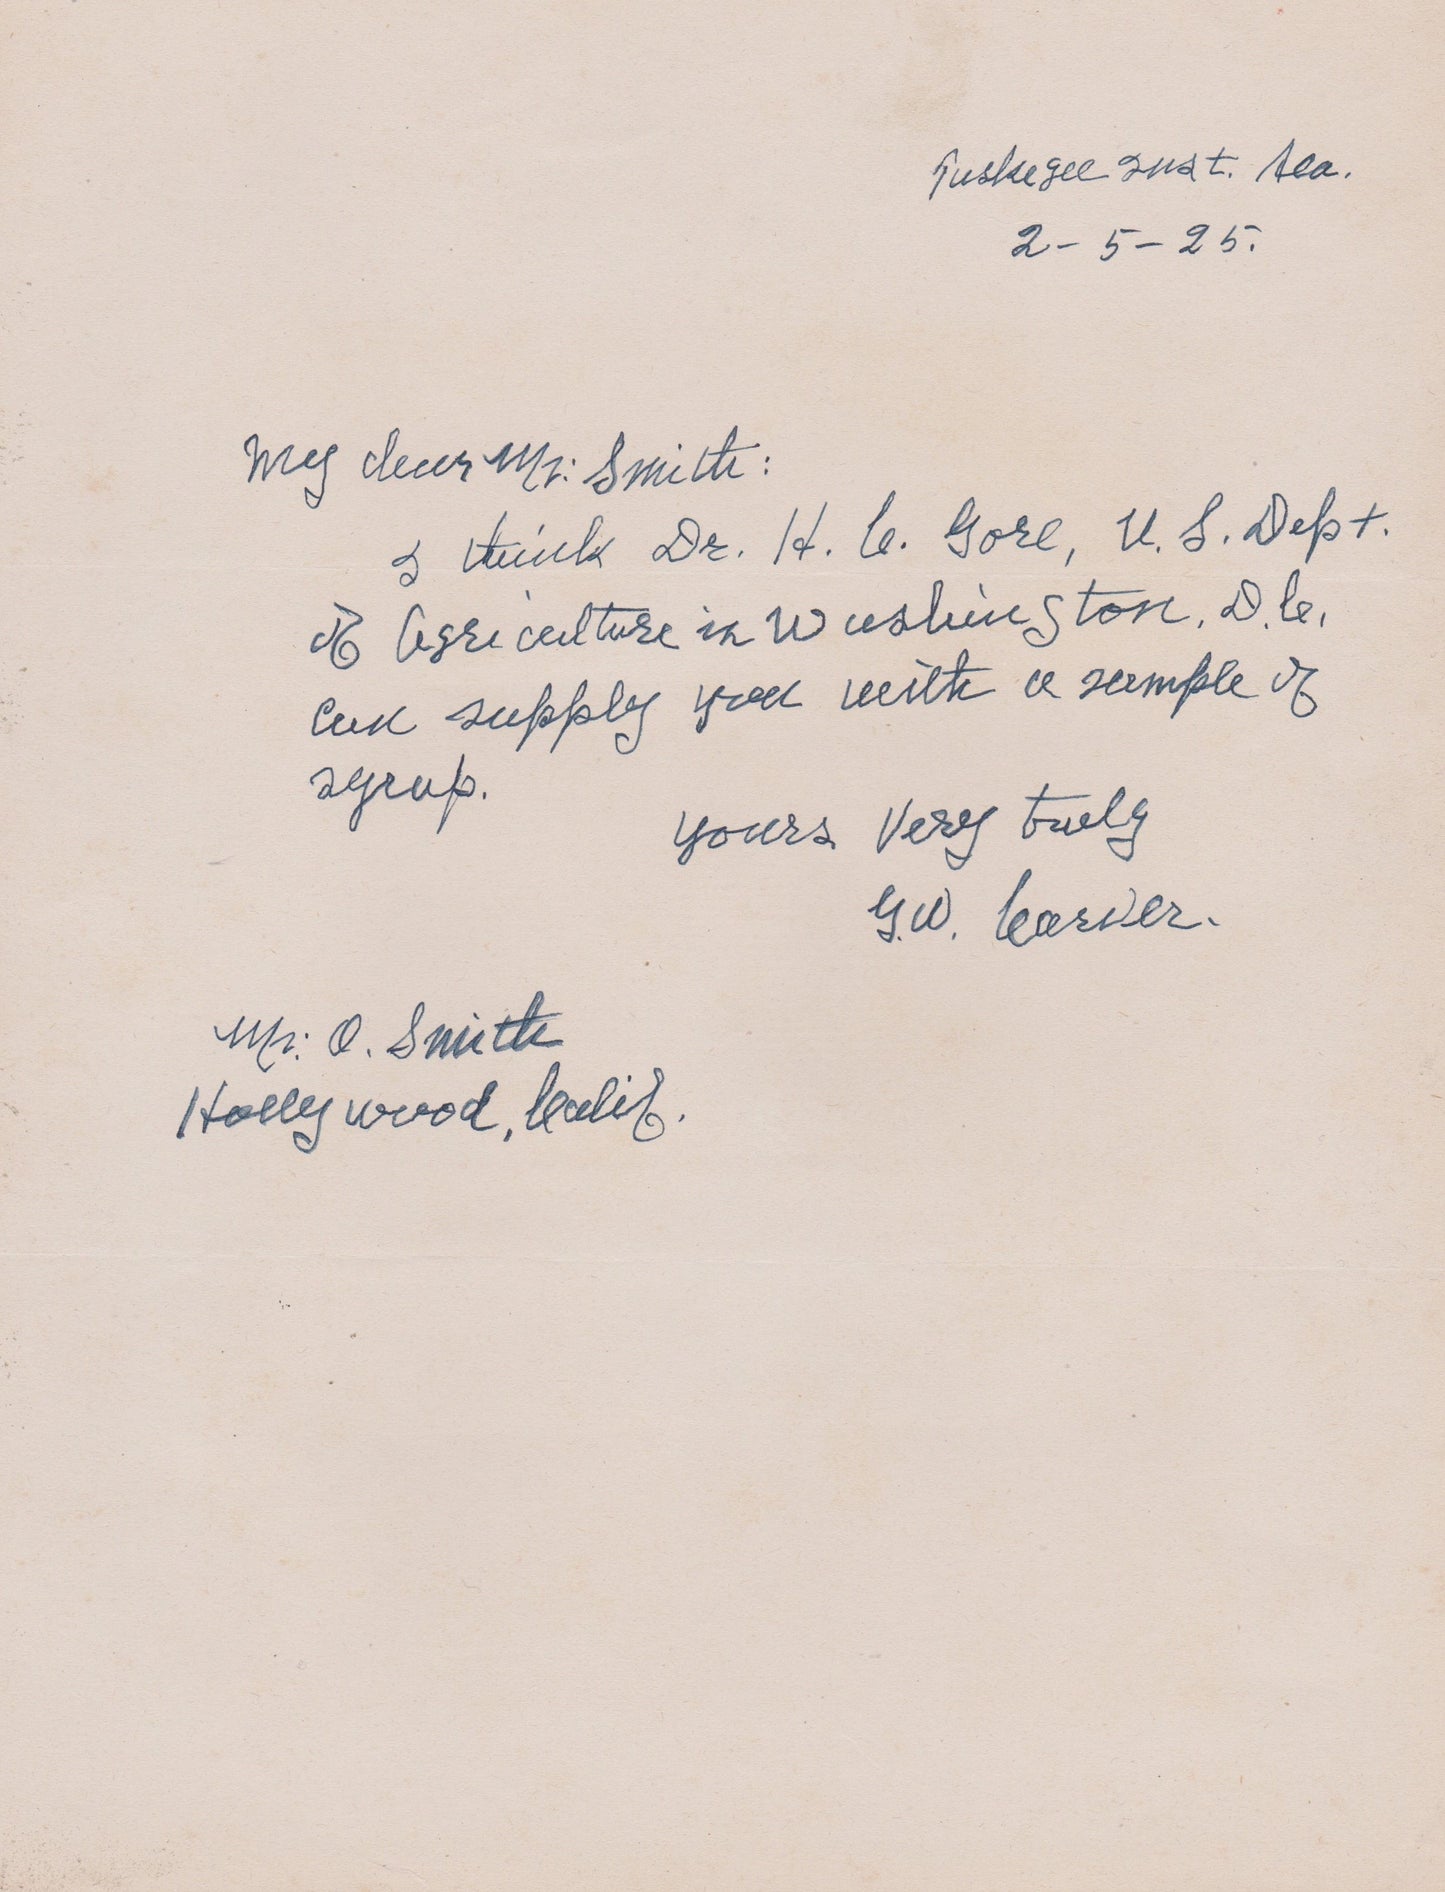 Tuskegee Inst. Ala.
2-5-25.
My dear Mr. Smith:
I think Dr. H. C. Gore, U. S. Dept.
of Agriculture in Washington, D.C.,
can supply you with a sample of
syrup.
Yours Very truly
G.W. Carver.
Mr. O. Smith
Hollywood, Calif.